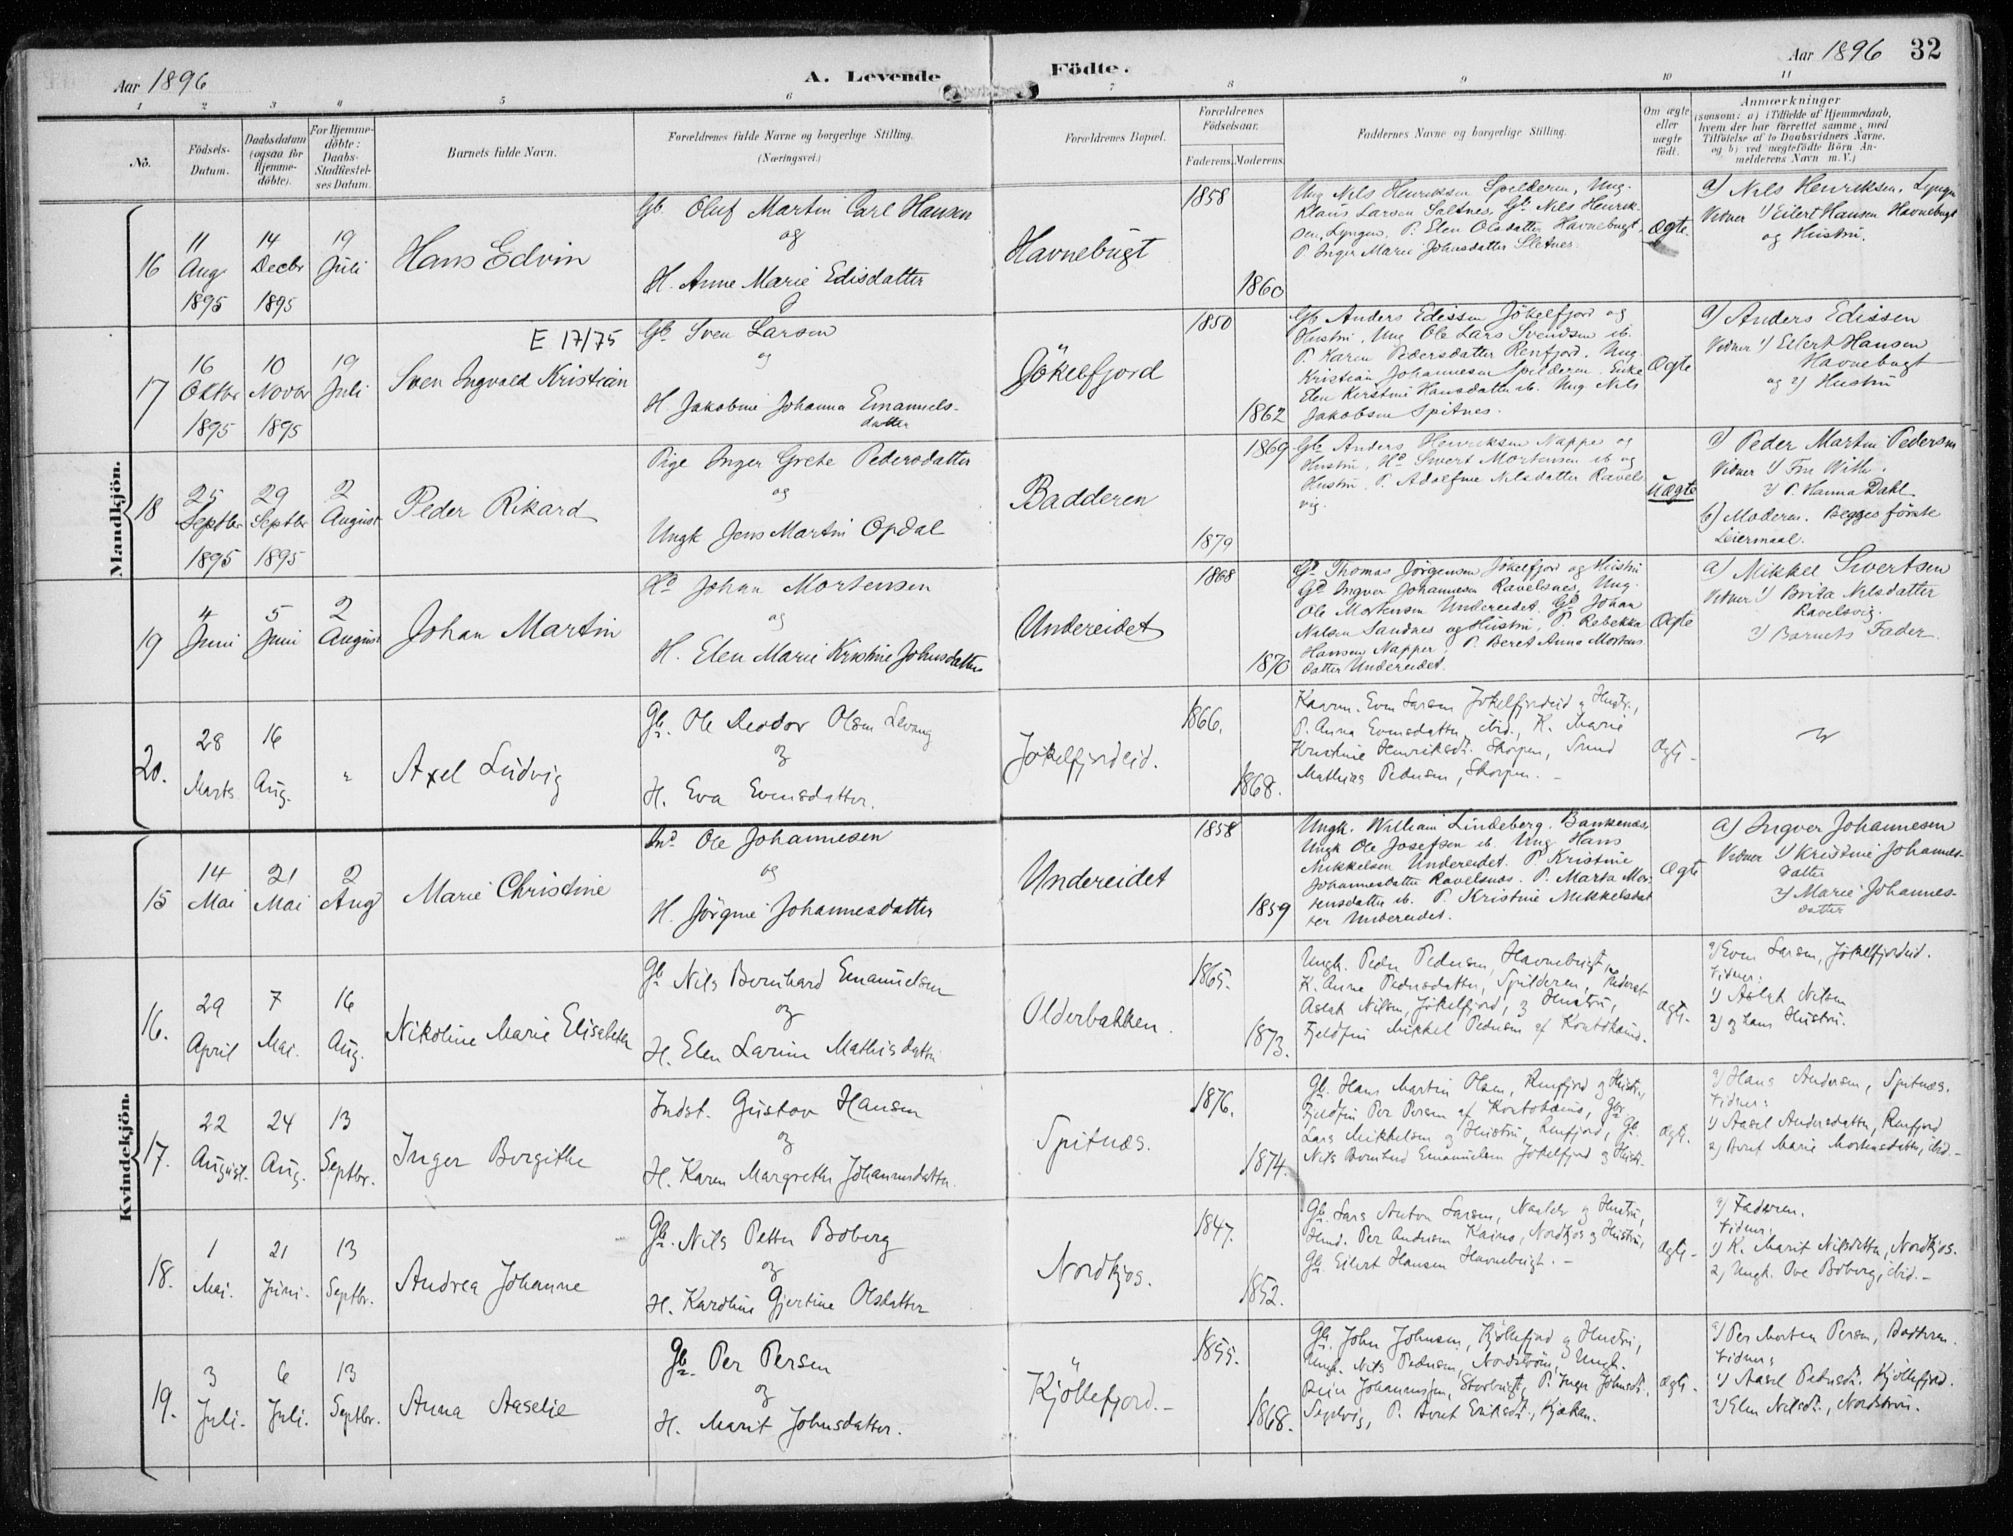 Aar 1896
A. Levende
Födte.
Aar 1896 32
1 2 3 4 5 6 7 8 9 10 11
No.
Födsels-
Datum.
Daabsdatum
(ogsaa for
Hjemme-
döbte).
For Hjemme-
döbte:
Daabs-
Stadfæstel-
ses Datum.
Barnets fulde Navn.
Forældrenes fulde Navne og borgerlige Stilling.
(Næringsvei.)
Forældrenes Bopæl.
Forældrenes
Födselsaar.
Faderens. Moderens.
Faddernes Navne og borgerlige Stilling.
Om ægte
eller
uægte
födt.
Anmærkninger
(saasom: a) i Tilfælde af Hjemmedaab,
hvem der har forrettet samme, med
Tilföielse af to Daabsvidners Navne,
og b) ved uægtefödte Börn An-
melderens Navn m. V.)
Mandkjön.
16
11
Aug
1895
14
Decbr
1895
19
Juli
Hans Edvin
Gb Oluf Martin Carl Hansen
og
H. Anne Marie Edisdatter
Havnebugt
1858
1860
Ung Nils Henriksen Spilderen, Ung.
Klaus Larsen Saltnes, Gb. Nils Henrik-
sen, Lyngen, P. Elen Olsdatter Havnebugt,
P. Inger Marie Johnsdatter Sletnes.
Ægte.
a) Nils Henriksen, Lyngen
Vidner 1) Eilert Hansen Havnebugt
og Hustru.
17
16
Oktbr
1895
10
Novbr
1895
19
Juli
E 17/75
Sven Ingvald Kristian
Gb Sven Larsen
og
H Jakobine Johanna Emanuels-
datter
Jökelfjord
1850
1862
Gb Anders Edissen Jökelfjord og
Hustru, Ung Ole Lars Svendsen ib.
P. Karen Pedersdatter Renfjord, Ung.
Kristian Johannesen Spilderen. Enke
Elen Kirstine Hansdatter ib. Ung Nils
Jakobsen Spitnes.
Ægte
a) Anders Edissen
Vidner 1) Eilert Hansen
Havnebugt
og 2) Hustru
18
25
Septbr
1895
29
Septbr
1895
2
August
Peder Rikard
Pige Inger Grete Pedersdatter
og
Ungk Jens Martin Opdal
Badderen
1869
1879
Gb Anders Henriksen Napper og
Hustru, Hd Sivert Mortensen ib og
Hustru, P. Adolfine Nilsdatter Ravels-
vig.
Uægte
a) Peder Martin Pedersen
Vidner 1) Fru With.
2) P. Hanna Dahl
b) Moderen. Begges förste
Leiermaal.
19
4
Juni
5
Juni
2
August
Johan Martin
Hd Johan Mortensen
og
H. Elen Marie Kristine Johnsdatter
Undereidet
1868
1870
Gb Thomas Jörgensen Jökelfjord og Hustru
Gb Ingver Johannesen Ravelsnes, Ung.
Ole Mortensen Undereidet. Gb Johan
Nilsen Sandnes og Hustru, P. Rebekka
Hansen Napper, P. Beret Anna Mortens-
datter Undereidet.
Ægte
a) Mikkel Sivertsen
Vidner 1) Brita Nilsdatter
Ravelsvig.
2) Barnets Fader
20.
28
Marts
16
Aug.
"
Axel Ludvig
Gb. Ole Teodor Olsen
og
H. Eva Evensdatter.
Jökelfjordeid.
1866.
1868.
Even Larsen Jökelfjordeid og Hustr.,
P. Anna Evensdatter, ibid., K. Marie
Kristine Henriksdt. Skorpen,
Mathias Pedersen, Skorpen. -
Ægte -
Kvindekjön.
15
14
Mai
21
Mai
2
Aug
Marie Christine
Ole Johannesen
og
H. Jörgine Johannesdatter
Undereidet
1858
1859
Ungk. William Lindeberg, Bankenæs.
Ungk Ole Josefsen ib. Ung Hans
Mikkelsen Undereidet. P. Kristine
Johannesdatter Ravelsnæs. P. Marta Mor-
tensdatter ib. P. Kristine Mikkelsdat
ter Undereidet.
Ægte
a) Ingver Johannesen
Vidner 1) Kristine Johannes-
datter
2) Marie Johannes-
datter
16.
29
April
7
Mai.
16
Aug.
Nikoline Marie Elisabeth
Gb Nils Bernhard Emanuelsen
og
H. Elen Larine Mathisdatter
Olderbakken.
1865.
1873.
Ungk. Peder Pedersen, Havnebugt,
K. Anne Pedersdatter, Spilderen,
Aslak Nilsen, Jökelfjord, og Hustru,
Fjeldfin Mikkel Pedersen af Koutokeino.
Ægte.
a) Even Larsen, Jökelfjordeid.
Vidner:
1) Aslak Nilsen
2) og hans Hustru.
17.
22
August.
24
Aug.
13
Septbr.
Inger Bergithe
Indst. Gustav Hansen
og
H. Karen Margrethe Johannesdatter.
Spitnæs.
1876.
1874.
Gb. Hans Martin Olsen, Renfjord og Hustr.,
Fjeldfin Per Persen af Koutokeino, Gb.
Lars Mikkelsen og Hustru, Renfjord, Gb.
Nils Bernhard Emanuelsen Jökelfjord og Hustr.
Ægte.
a) Hans Andersen, Spitnæs.
Vidner:
1) Aasel Andersdatter, Renfjord
2) Beret Marie Mortensdatter, ibid. -
18.
1
Mai.
21
Juni.
13
Septbr.
Andrea Johanne
Gb. Nils Petter Boberg
og
H. Karoline Gjertine Olsdatter
Nordkjos.
1847.
1852.
Gb. Lars Anton Larsen, og Hustru,
Hmd. Per Andersen Kaino, Nordkjos og Hustru,
Gb. Eilert Hansen Havnebugt. -
Ægte -
a) Faderen.
Vidner:
1) K. Marit Nilsdatter, Nordkjos.
2) Ungk. Ove Boberg, ibid. -
19.
3
Juli.
6
Juli.
13
Septbr.
Anna Aaselie
Gb. Per Persen
og
H. Marit Johnsdatter.
Kjöllefjord. -
1855.
1868.
Gb. John Johnsen, Kjöllefjord og Hustru,
Ungk. Nils Pedersen, Nordström, Ungk.
Johannesen, Storbugt, P. Inger Johnsdt.
Segelvig, P. Beret Eriksdt., Kjækan.
Ægte -
a) Per Morten Persen, Badderen.
Vidner:
1) Aasel Pedersdt. Kjöllefjord.
2) Elen Nilsdt., Nordström.